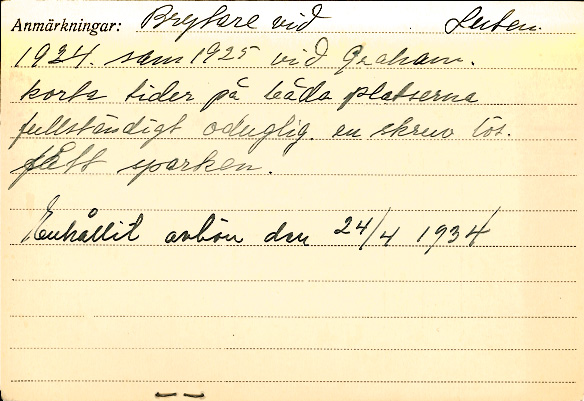 Anmärkningar: Brytare vid
1924. sam 1925 vid Graham.
korta tider på båda platserna
fullständigt oduglig. en skruv lös.
fått sparken.
avbön den 24/4 1934